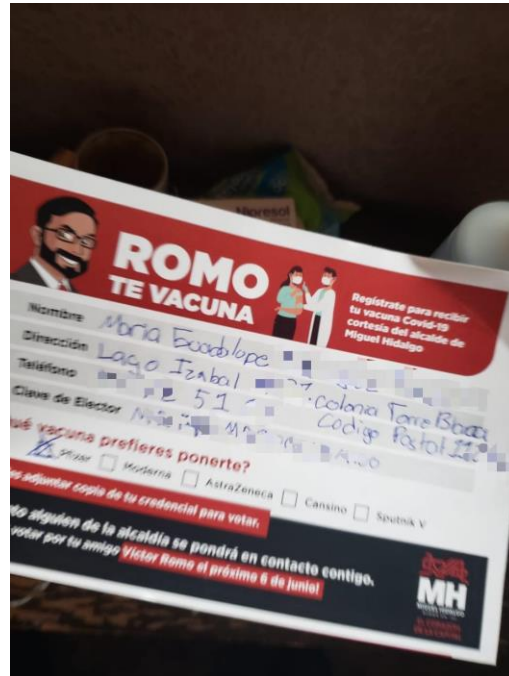 Nipresol
ROMO
TE VACUNA
Regístrate para recibir
tu vacuna Covid-19
cortesía del alcalde de
Miguel Hidalgo
Nombre Maria Guadalupe
Dirección Lago Izabal colonia Torre Blanca
Teléfono 51 Codigo Postal
Clave de Elector
qué vacuna prefieres ponerte?
Pfizer Moderna AstraZeneca Cansino Sputnik V
es adjuntar copia de tu credencial para votar.
to alguien de la alcaldía se pondrá en contacto contigo.
votar por tu amigo Víctor Romo el próximo 6 de junio!
MH